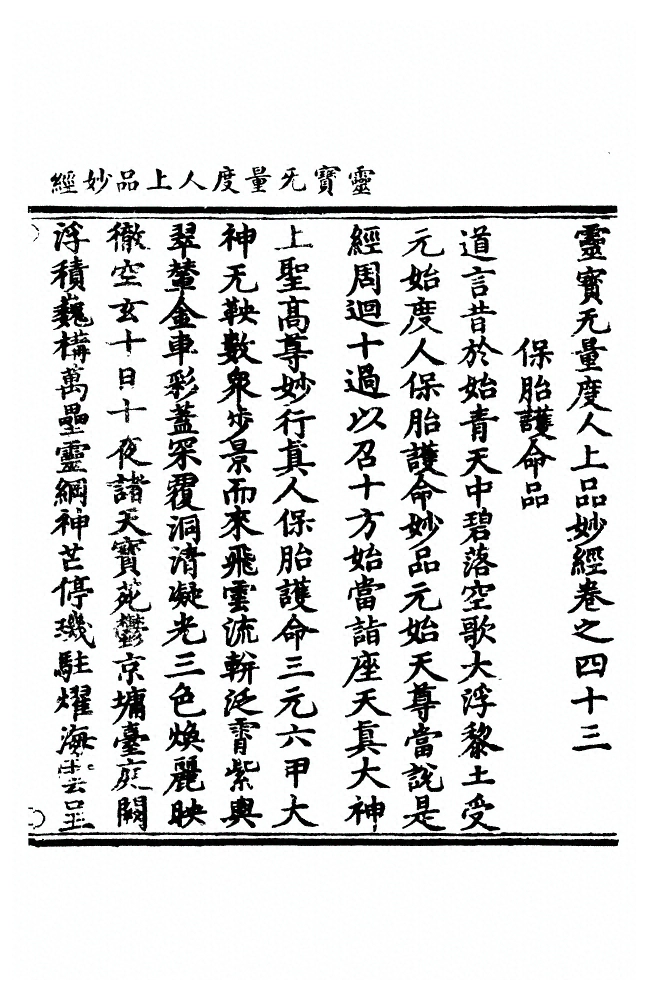 靈寶无量度人上品妙經
靈寶无量度人上品妙經卷之四十三
保胎護命品
道言昔於始青天中碧落空歌大浮黎土受
元始度人保胎護命妙品元始天尊當說是
經周迴十過以召十方始當詣座天真大神
上聖高尊妙行真人保胎護命三元六甲大
神无鞅數衆步景而來飛雲流軿泛霄紫輿
翠輦金車彩蓋罙覆洞清凝光三色煥麗映
徹空玄十日十夜諸天寶苑鬱京墉臺庭闕
浮積巍構萬壘靈綱神芒停璣駐燿海雲呈